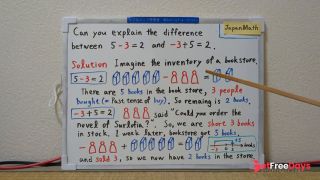 JapanMath
Can you explain the difference
between 5-3=2 and -3+5=2.
Solution Imagine the inventory of a bookstore.
5-3=2 - = 
There are 5 books in the book store, 3 people
bought (= Past tense of buy). So remaing is 2 books.
-3+5=2 said "Could you order the
novel of Surlofia?". So, we are short 3 books
in stock. 1 week later, bookstore got 5 books,
- + =
and sold 3, so we now have 2 books in the store.
FreeDays